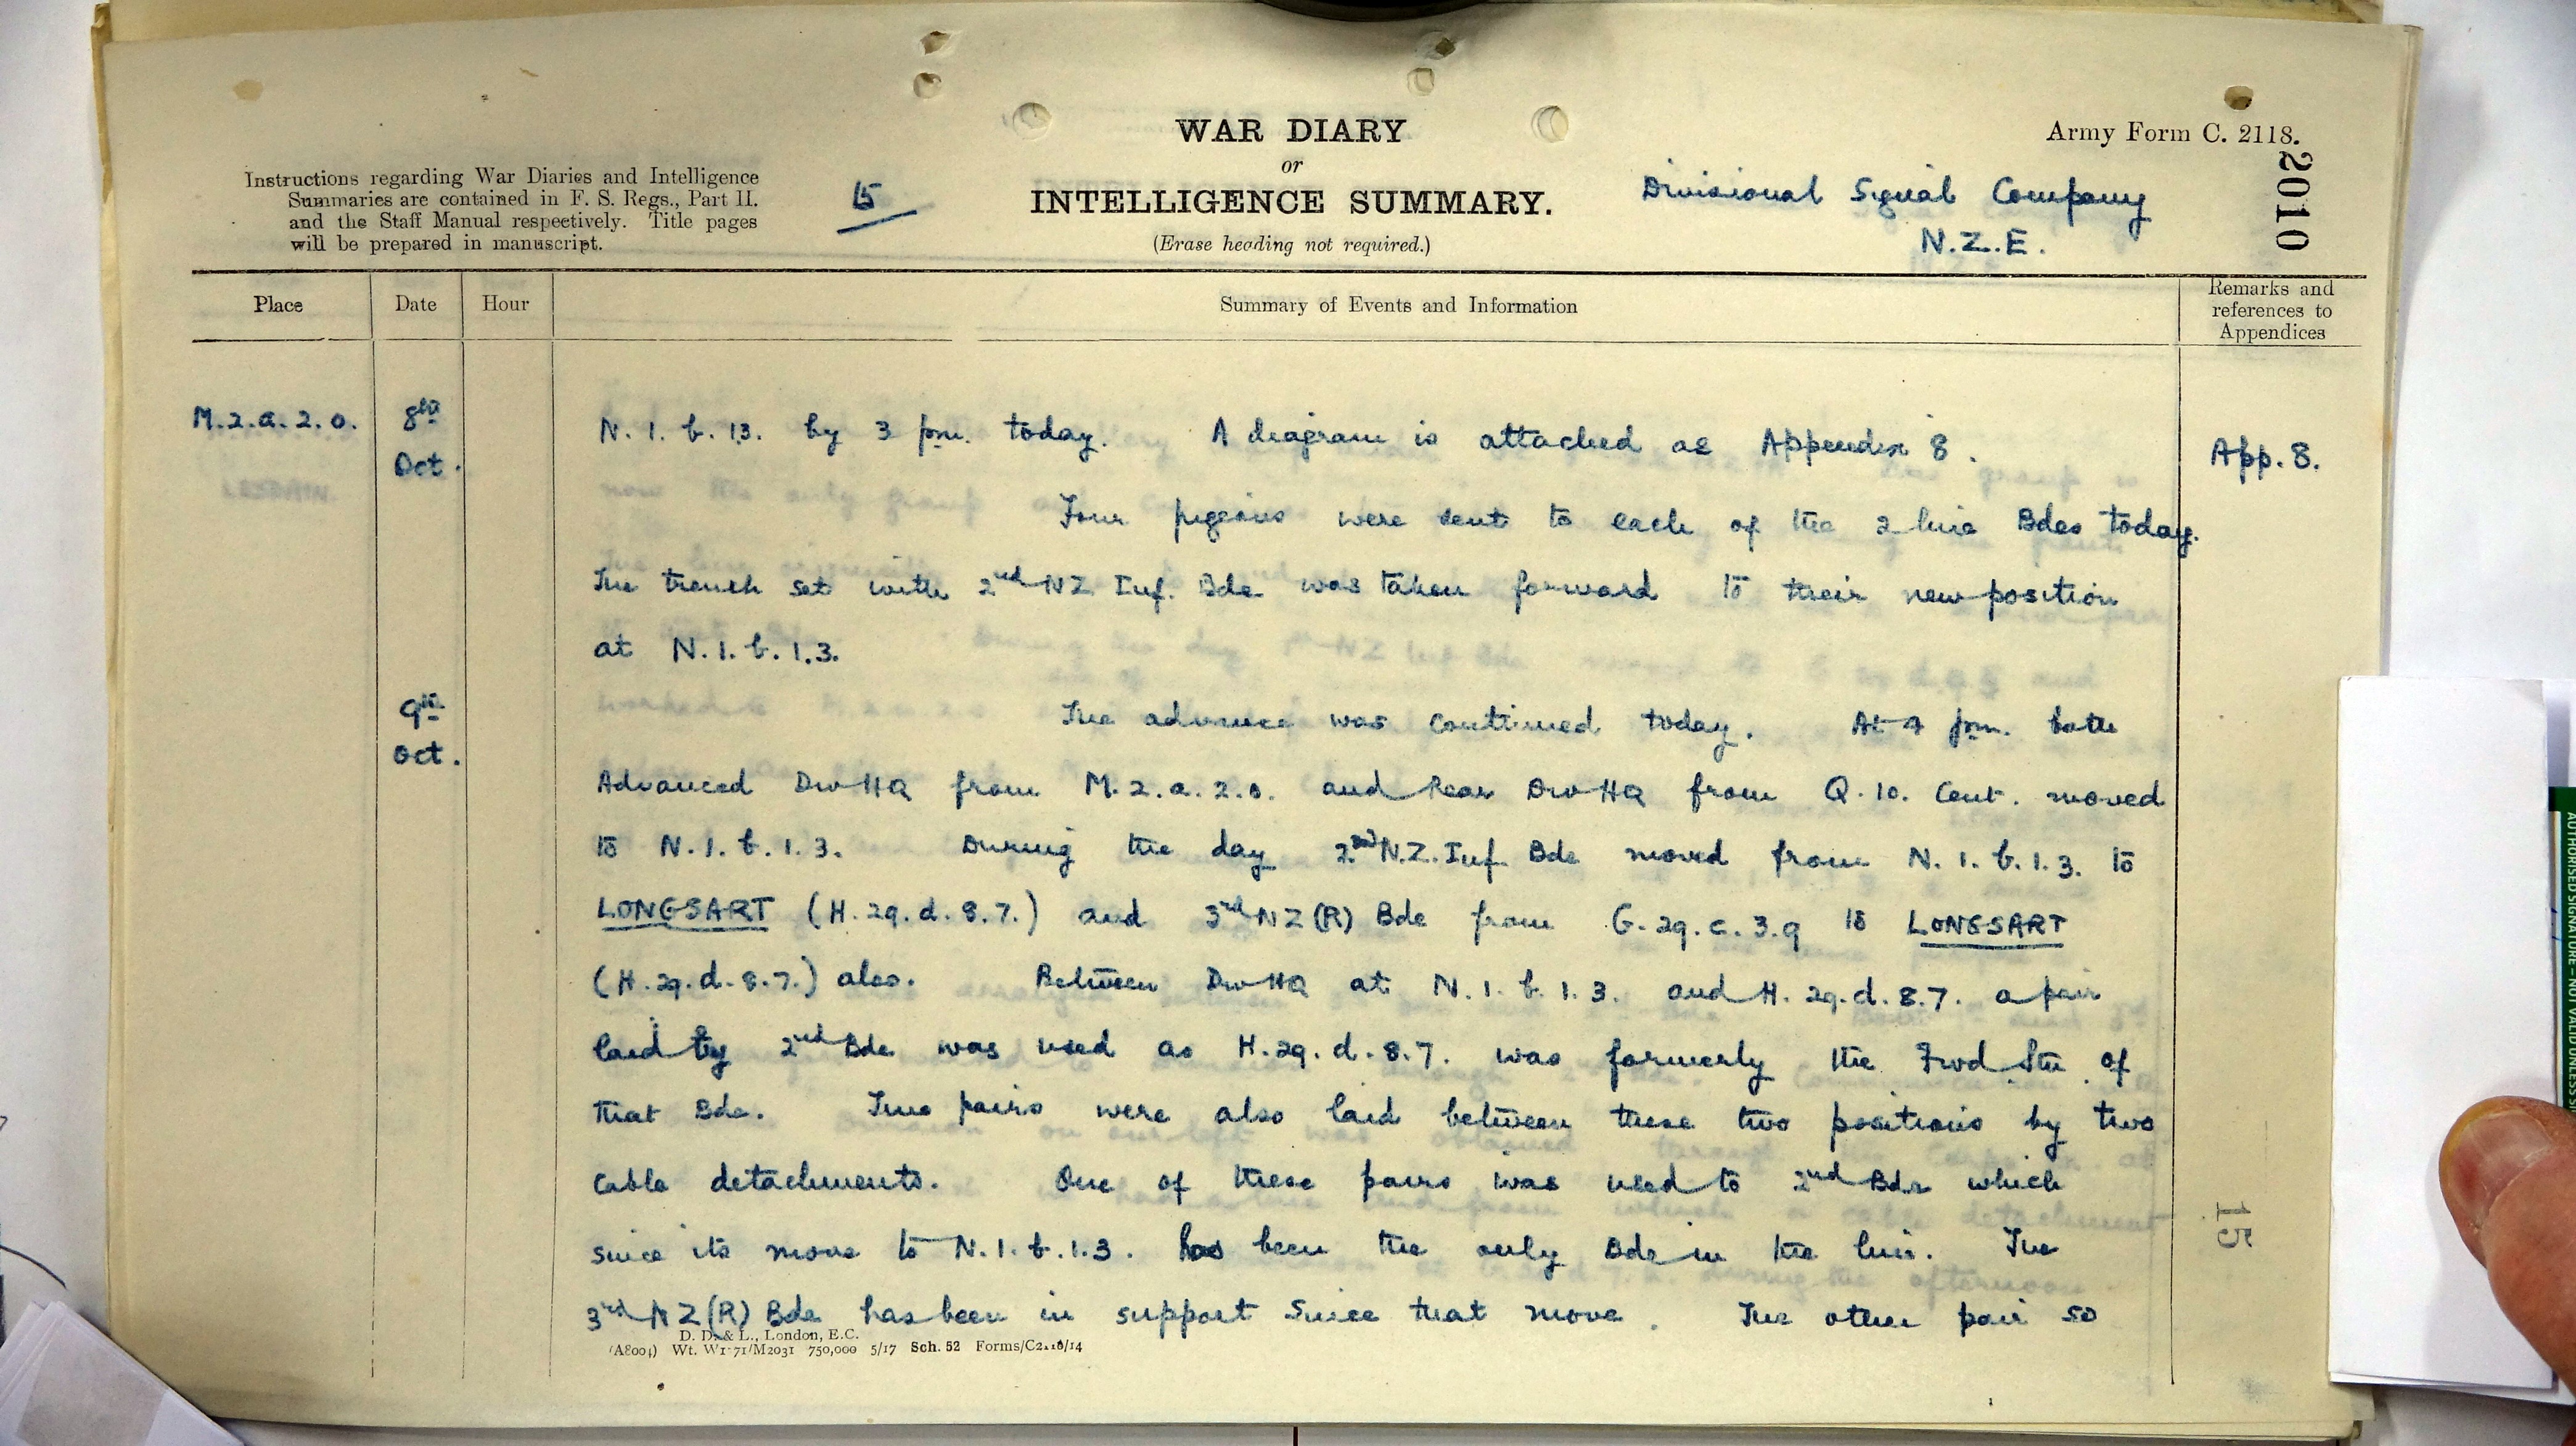 WAR DIARY
or
INTELLIGENCE SUMMARY.
(Erase heading not required.)
Army Form C. 2118.
Instructions regarding War Diaries and Intelligence
Summaries are contained in F. S. Regs., Part II.
and the Staff Manual respectively. Title pages
will be prepared in manuscript.
15
Divisional Signal Company
N.Z.E.
2010
Place
Date
Hour
Summary of Events and Information
Remarks and
references to
Appendices
M.2.a.2.0.
8th
Oct.
N.1.b.13. by 3 pm. today. A diagram is attached as Appendix 8.
App. 8.
Four pigeons were sent to each of the 2 line Bdes today.
The trench set with 2nd NZ Inf. Bde was taken forward to their new position
at N.1.b.1.3.
9th
Oct.
The advance was continued today. At 4 pm. both
Advanced Div HQ from M.2.a.2.0. and Rear Div HQ from Q.10. Cent. moved
to N.1.b.1.3. During the day 2nd N.Z. Inf Bde moved from N.1.b.1.3. to
LONGSART (H.29.d.8.7.) and 3rd NZ(R) Bde from G.29.c.3.9 to LONGSART
(H.29.d.8.7.) also. Between Div HQ at N.1.b.1.3. and H.29.d.8.7. a pair
laid by 2nd Bde was used as H.29.d.8.7. was formerly the Fwd Stn of
that Bde. Two pairs were also laid between these two positions by two
cable detachments. One of these pairs was used to 2nd Bde which
since its move to N.1.b.1.3. has been the only Bde in the line. The
3rd NZ(R) Bde has been in support since that move. The other pair so
15
D. D. & L., London, E.C.
(A8004) Wt. W1771/M2031 750,000 5/17 Sch. 52 Forms/C2118/14
AUTHORISED SIGNATURE - NOT VALID UNLESS